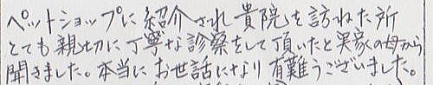 ペットショップに紹介され貴院を訪ねた所
とても親切に丁寧な診察をして頂いたと実家の母から
聞きました。本当にお世話になり有難うございました。